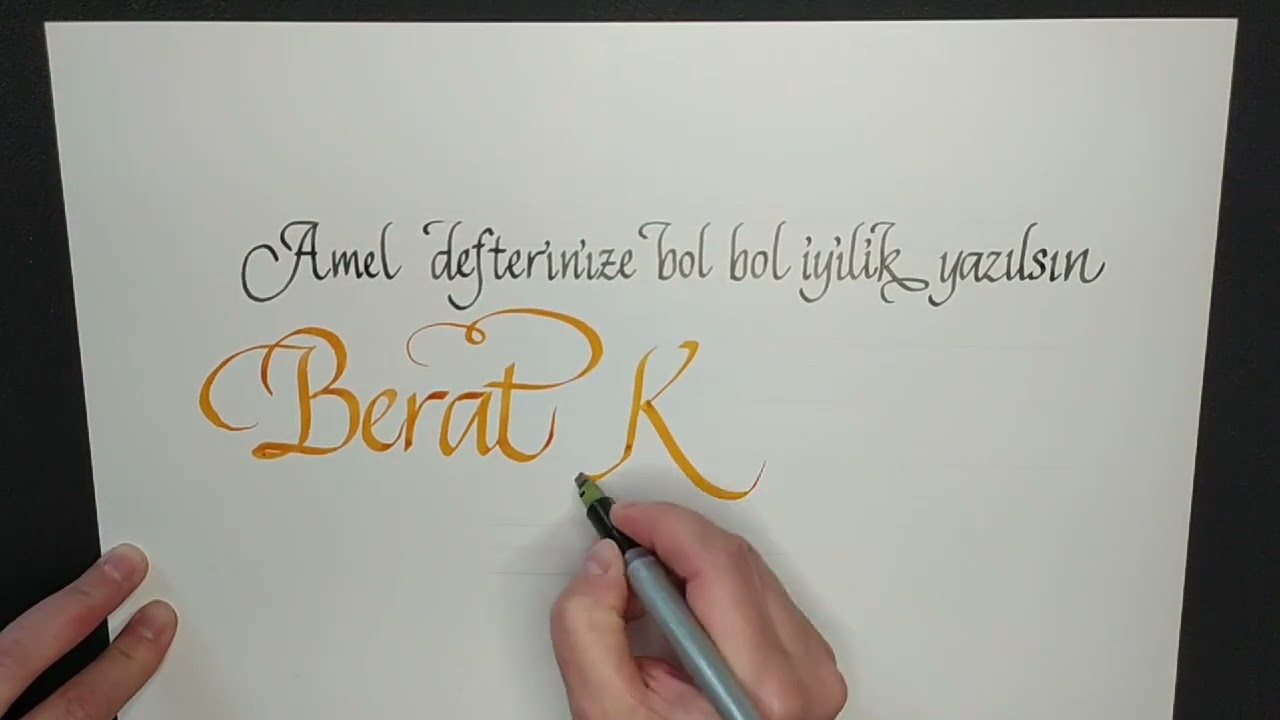 Amel defterinize bol bol iyilik yazılsın
Berat K